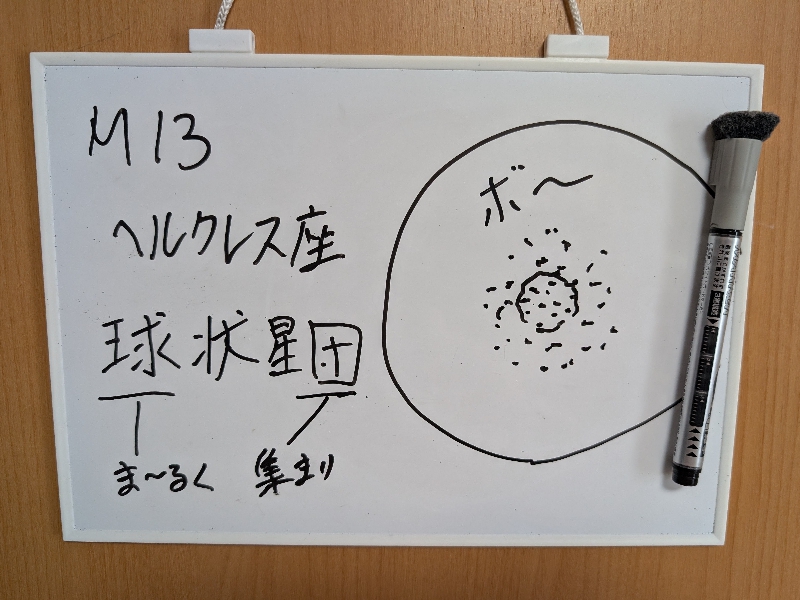 M13
ヘルクレス座
球状星団
ま〜るく 集まり
ボ〜